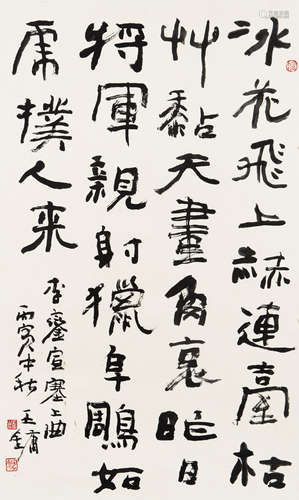 冰花飛上赫連臺枯
艸黏天畫角哀昨日
將軍親射獵皁鵰如
虎撲人来
李鑾宣塞上曲
丙寅中秋王鏞